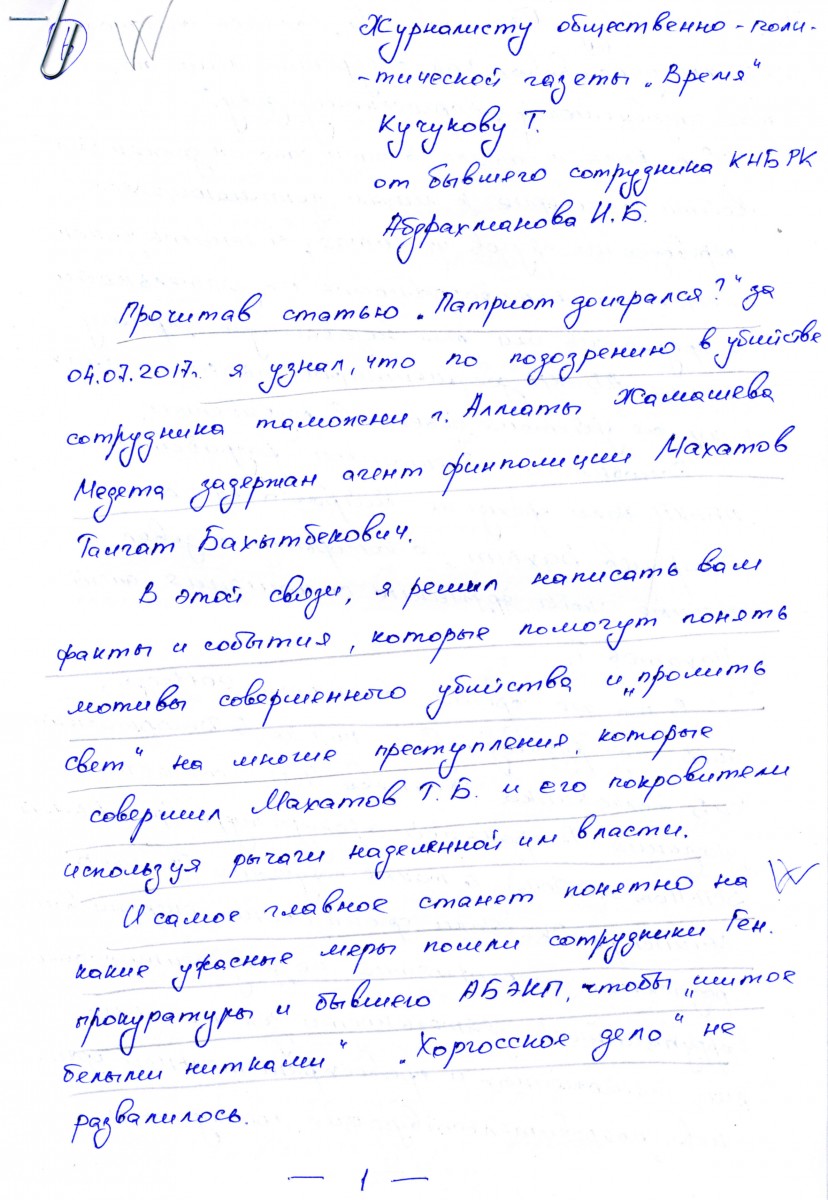 Журналисту общественно-поли-
-тической газеты „Время“
Кучукову Т.
от бывшего сотрудника КНБ РК
Абдрахманова И.Б.
Прочитав статью „Патриот доигрался?“ за
04.07.2017г. я узнал, что по подозрению в убийстве
сотрудника таможени г. Алматы Жамашева
Медета задержан агент финполиции Махатов
Талгат Бахытбекович.
В этой связи, я решил написать вам
факты и события, которые помогут понять
мотивы совершенного убийства и „пролить
свет“ на многие преступления, которые
совершил Махатов Т.Б. и его покровители
используя рычаги наделенной им власти.
И самое главное станет понятно на
какие ужасные меры пошли сотрудники Ген.
прокуратуры и бывшего АБЭКП, чтобы „шитое
белыми нитками“ „Хоргосское дело“ не
развалилось.
— 1 —